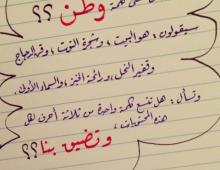 كلمة
وطن ؟؟
سيقولون : هو البيت ، وشجرة التوت ، وقن الدجاج
وقفير النحل ، ورائحة الخبز ، والسماء الأولى .
وتسأل : هل تتسع كلمة واحدة من ثلاثة أحرف لكل
هذه المحتويات ،
وتضيق بنا ؟؟